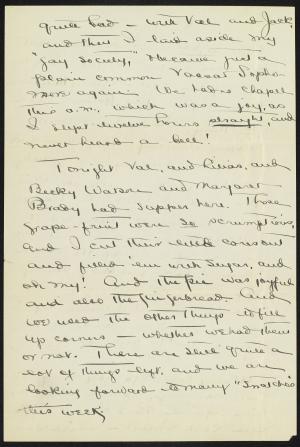 quite bad - with Val and Jack,
and then I laid aside my
"gay society," & became just a
plain common Vassar Sopho-
more again. We had no chapel
this a.m., which was a joy, as
I slept twelve hours straight, and
never heard a bell!
Tonight Val, and Lilias, and
Becky Watson and Margaret
Brady had supper here. Those
grape-fruit were so scrumptious,
and I cut their little cores out
and filled 'em with sugar, and
oh my! And the pie was joyful
and also the gingerbread. And
we used the other things to fill
up corners - whether we had them
or not. There are still quite a
lot of things left, and we are
looking forward to many "snatches"
this week,